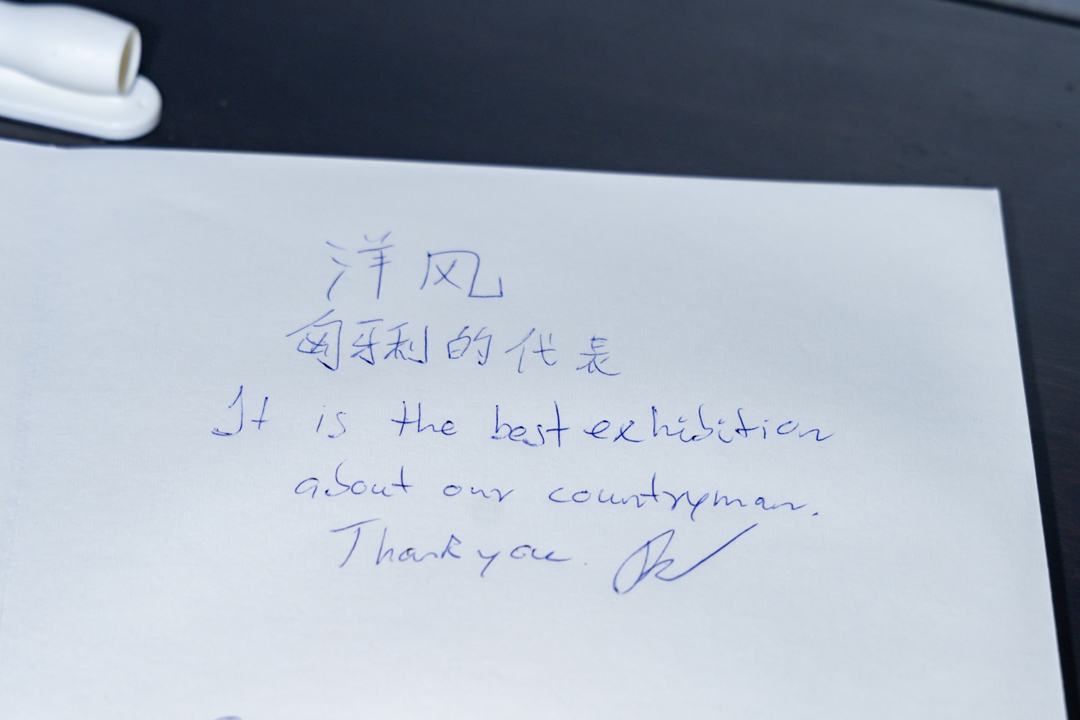 洋风
匈牙利的代表
It is the best exhibition
about our countryman.
Thank you.